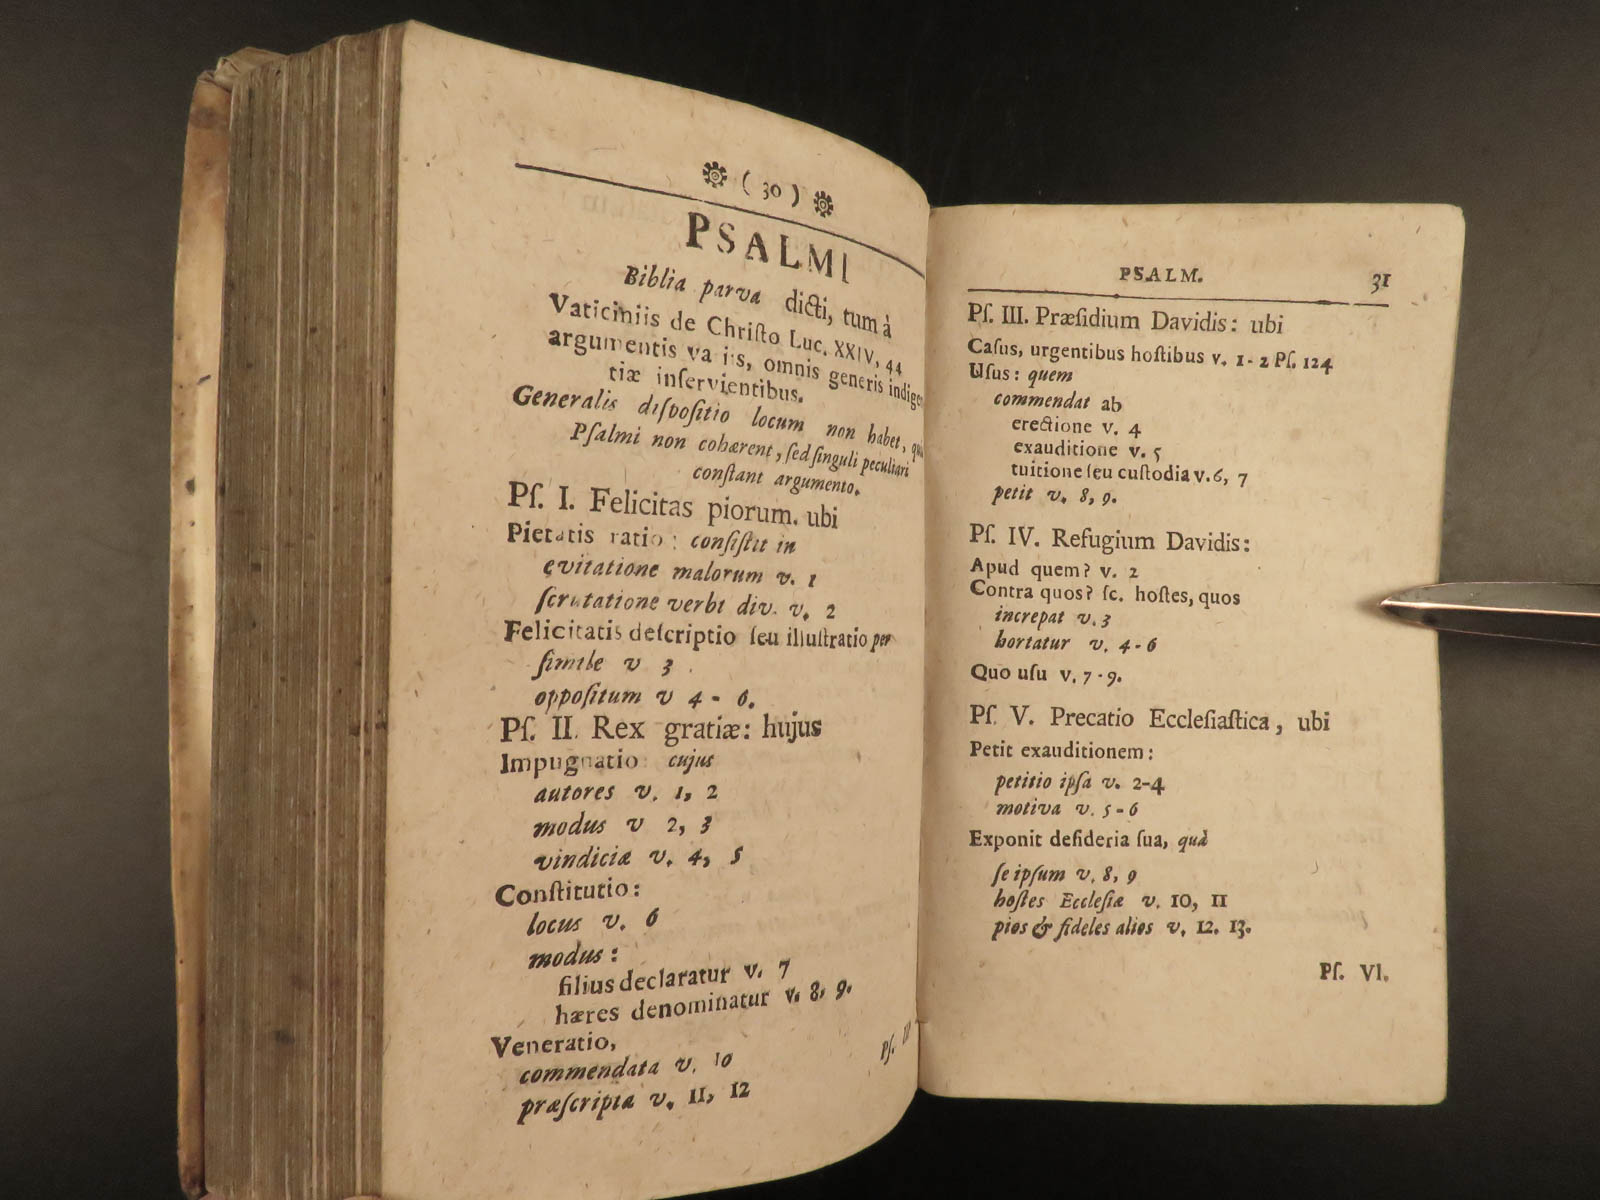 ( 30 )
PSALMI
Biblia parva dicti, tum à
Vaticiniis de Chriſto Luc. XXIV, 44
argumentis va iis, omnis generis indigen
tiæ inſervientibus.
Generalis diſpoſitio locum non habet, qui
Pſalmi non cohærent, ſed ſinguli peculiari
conſtant argumento.
Pſ. I. Felicitas piorum. ubi
Pietatis ratio: conſiſtit in
evitatione malorum v. 1
ſcrutatione verbi div. v. 2
Felicitatis deſcriptio ſeu illuſtratio per
ſimile v 3.
oppoſitum v 4 - 6.
Pſ. II. Rex gratiæ: hujus
Impugnatio: cujus
autores v. 1, 2
modus v 2, 3
vindiciæ v. 4, 5
Conſtitutio:
locus v. 6
modus:
filius declaratur v. 7
hæres denominatur v. 8, 9.
Veneratio,
commendata v. 10
præſcripta v. 11, 12
Pſ. III
PSALM. 31
Pſ. III. Præſidium Davidis: ubi
Caſus, urgentibus hoſtibus v. 1-2 Pſ. 124
Uſus: quem
commendat ab
erectione v. 4
exauditione v. 5
tuitione ſeu cuſtodia v. 6, 7
petit v. 8, 9.
Pſ. IV. Refugium Davidis:
Apud quem? v. 2
Contra quos? ſc. hoſtes, quos
increpat v. 3
hortatur v. 4-6
Quo uſu v. 7-9.
Pſ. V. Precatio Eccleſiaſtica, ubi
Petit exauditionem:
petitio ipſa v. 2-4
motiva v. 5-6
Exponit deſideria ſua, quà
ſe ipſum v. 8, 9
hoſtes Eccleſiæ v. 10, 11
pios & fideles alios v. 12. 13.
Pſ. VI.